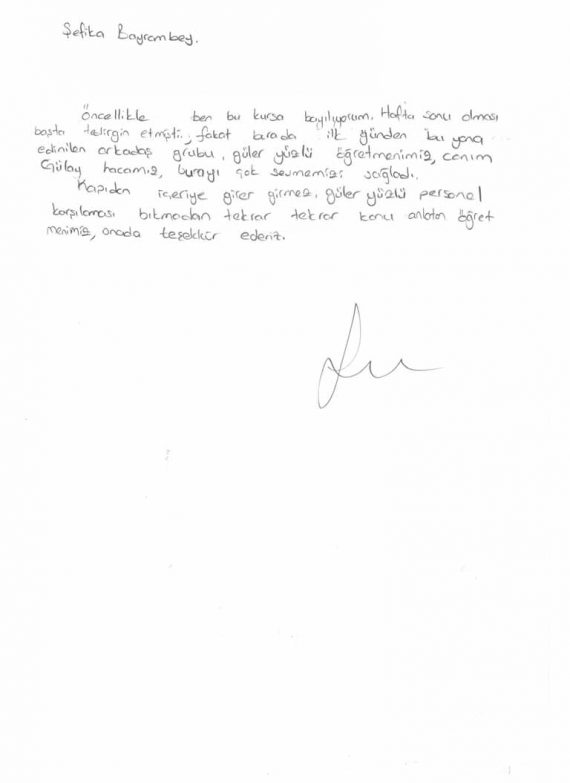 Şefika Bayrambey.
Öncellikle ben bu kursa bayılıyorum. Hafta sonu olması
başta tedirgin etmişti, fakat burada ilk günden bu yana
edinilen arkadaş grubu, güler yüzlü öğretmenimiz, canım
Gülay hocamız, burayı çok sevmemizi sağladı.
Kapıdan içeriye girer girmez, güler yüzlü personel
karşılaması bıkmadan tekrar tekrar konu anlatan öğret
menimiz, onada teşekkür ederiz.